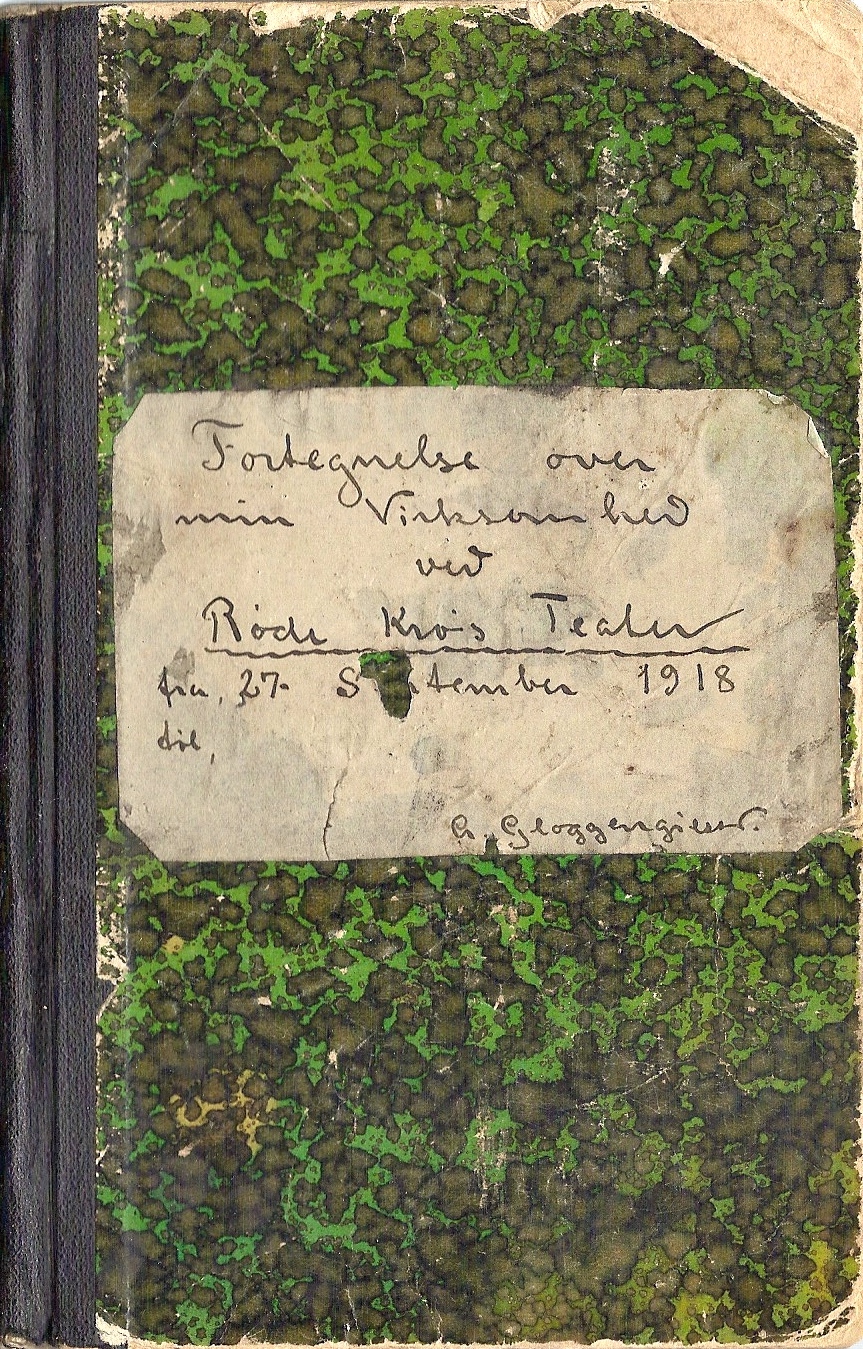 Fortegnelse over
min Virksomhed
ved
Røde Kro's Teater
fra, 27. S tember 1918
til,
G. Gloggengieser.